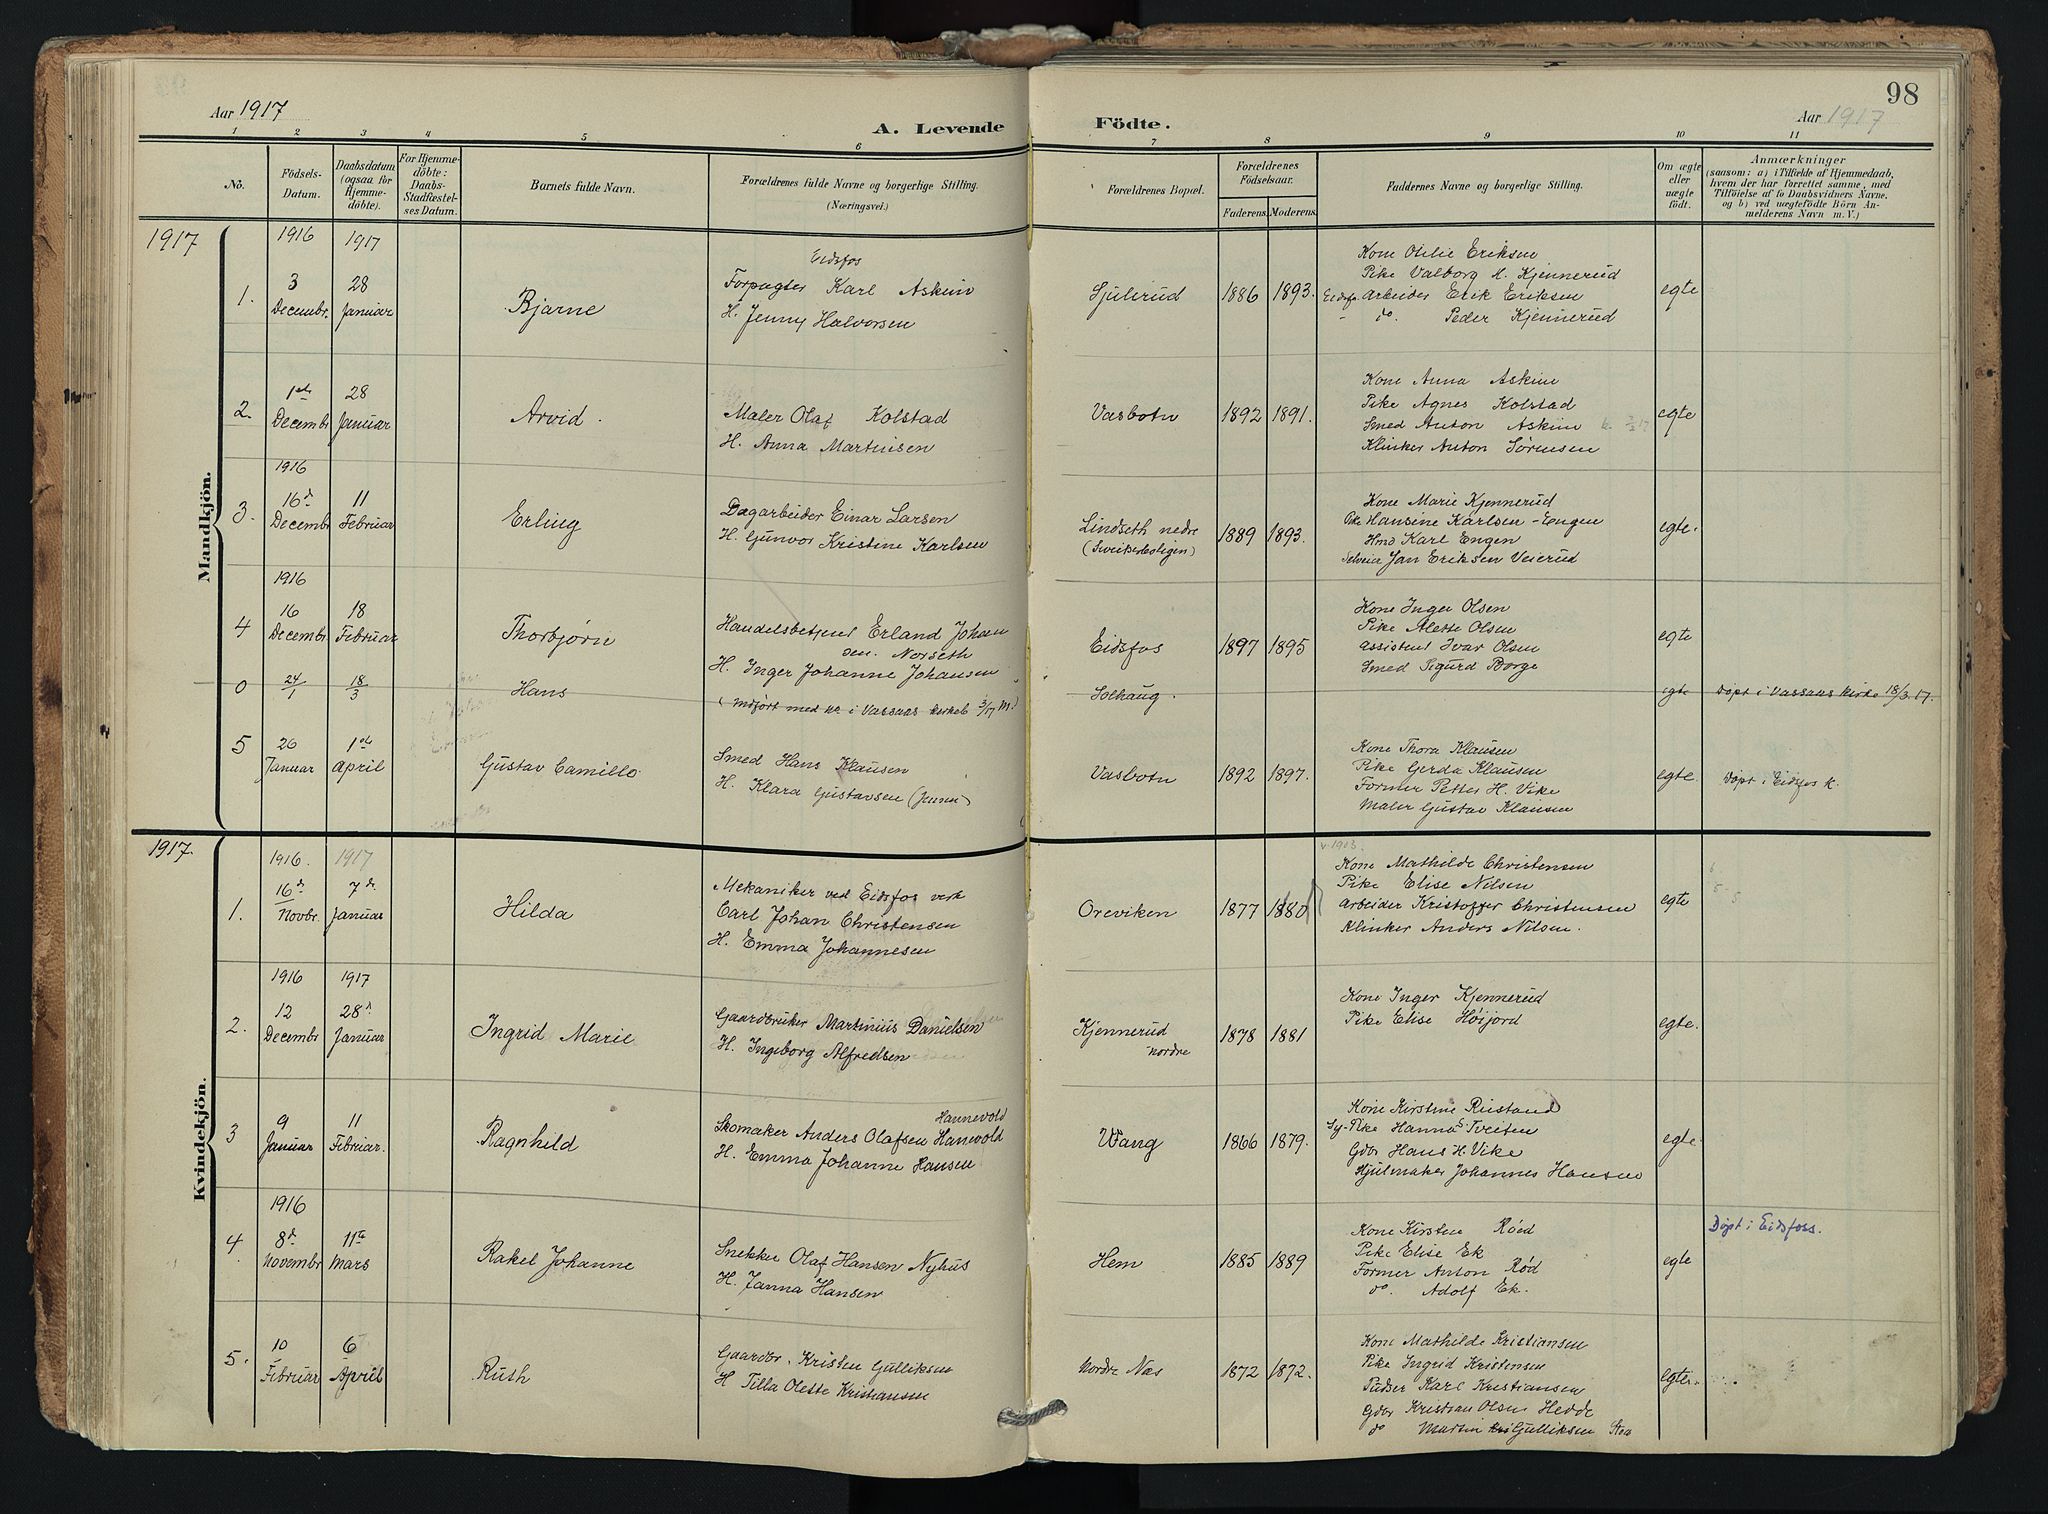 98
Aar 1917
A. Levende
Födte.
Aar 1917
1 2 3 4 5 6 7 8 9 10 11
No.
Födsels-Datum.
Daabsdatum (ogsaa for Hjemme-döbte).
For Hjemme-döbte: Daabs-Stadfæstel-ses Datum.
Barnets fulde Navn.
Forældrenes fulde Navne og borgerlige Stilling.
(Næringsvei.)
Forældrenes Bopæl.
Forældrenes Födselsaar.
Faderens. Moderens.
Faddernes Navne og borgerlige Stilling.
Om ægte eller uægte födt.
Anmærkninger
(saasom: a) i Tilfælde af Hjemmedaab,
hvem der har forrettet samme, med
Tilföielse af to Daabsvidners Navne,
og b) ved uægtefödte Börn An-
melderens Navn m. V.)
1917
Mandkjön.
1916 1917
1. 3 Decembr. 28 Januar Bjarne
Eidsfos
Forpagter Karl Askim
H. Jenny Halvorsen
Sjulerud 1886 1893.
Kone Otilie Eriksen
Pike Valborg M. Kjennerud
Eidsfos Arbeider Erik Eriksen
- do. Peder Kjennerud
egte
2. 1ste Decembr 28 Januar Arvid.
Maler Olaf Kolstad
H. Anna Martinsen
Vasbotn 1892 1891.
Kone Anna Askim
Pike Agnes Kolstad
Smed Anton Askim
Klinker Anton Sørensen
egte
1916
3. 16d Decembr 11 Februar Erling
Dagarbeider Einar Larsen
H. Gunvor Kristine Karlsen
Lindseth nedre
1889 1893.
Kone Marie Kjennerud
Pike Hansine Karlsen - Engen
Hmd Karl Engen
Selveier Jan Eriksen Veierud
egte.
1916
4 16 Decembr 18 Februar Thorbjørn
Handelsbetjent Erland Johan
sen. Norseth
H. Inger Johanne Johansen
Eidsfos 1897 1895
Kone Inger Olsen
Pike Alette Olsen
Assistent Ivar Olsen
Smed Sigurd Borge
egte
0 24/1 18/3 Hans
(Indført med nr i Vassaas kirkeb. 3/17 M.)
Solhaug.
egte
Døpt i Vassaas kirke 18/3.17.
5 26 Januar 1ste April Gustav Camillo
Smed Hans Klausen
H. Klara Gustavsen
Vasbotn 1892 1897.
Kone Thora Klausen
Pike Gerda Klausen
Former Petter H. Vike
Maler Gustav Klausen
egte.
Døpt i Eidsfos k.
1917.
Kvindekjön.
1916. 1917
1. 16d Novbr. 7de Januar Hilda
Mekaniker ved Eidsfos verk
Carl Johan Christensen
H. Emma Johannesen
Oreviken 1877 1880
v. 1903.
Kone Mathilde Christensen
Pike Elise Nilsen
Arbeider Kristoffer Christensen
Klinker Anders Nilsen.
egte
1916 1917
2. 12 Decembr 28d Januar Ingrid Marie
Gaardbruker Martinius Danielsen
H. Ingeborg Alfredsen
Kjennerud
nordre
1878 1881
Kone Inger Kjennerud
Pike Elise Høijord
egte.
3 9 Januar 11 Februar. Ragnhild
Hannevold
Skomaker Anders Olafsen Hanevold
H. Emma Johanne Hansen
Wang 1866 1879.
Kone Kirstine Riistand
Sy-Pike Hanna S Tveiten
Gdbr Hans H. Vike
Hjulmaker Johannes Hansen
egte.
1916
4. 8d Novembr 11te Mars Rakel Johanne
Snekker Olaf Hansen Nyhus
H. Janna Hansen
Hem 1885 1889
Kone Kirsten Røed
Pike Elise Ek
Former Anton Rød
do. Adolf Ek.
egte
Døpt i Eidsfoss.
5. 10 Februar 6 April Ruth
Gaardbr. Kristen Gulliksen
H Tilla Olette Kristiansen
Nordre Næs 1872 1872.
Kone Mathilde Kristiansen
Pike Ingrid Kristensen
Pudser Karl Kristiansen
Gdbr Kristian Olsen Hedde
do Martin Gulliksen
egte.